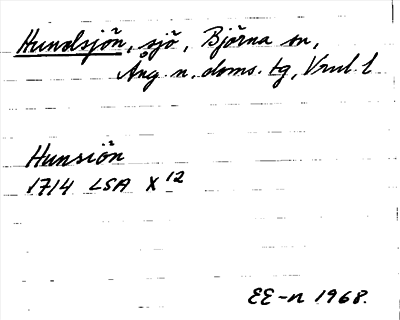 Hundsjön, sjö, Björna sn,
Ång. n. doms. tg, Vrul. l
Hunsiön
1714 LSA X 12
EE-n 1968.